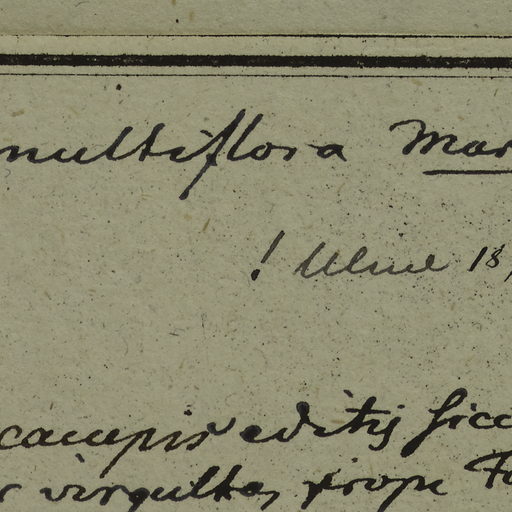 multiflora Mar
! Ulme 18
campis editis sicc
r virgultas prope